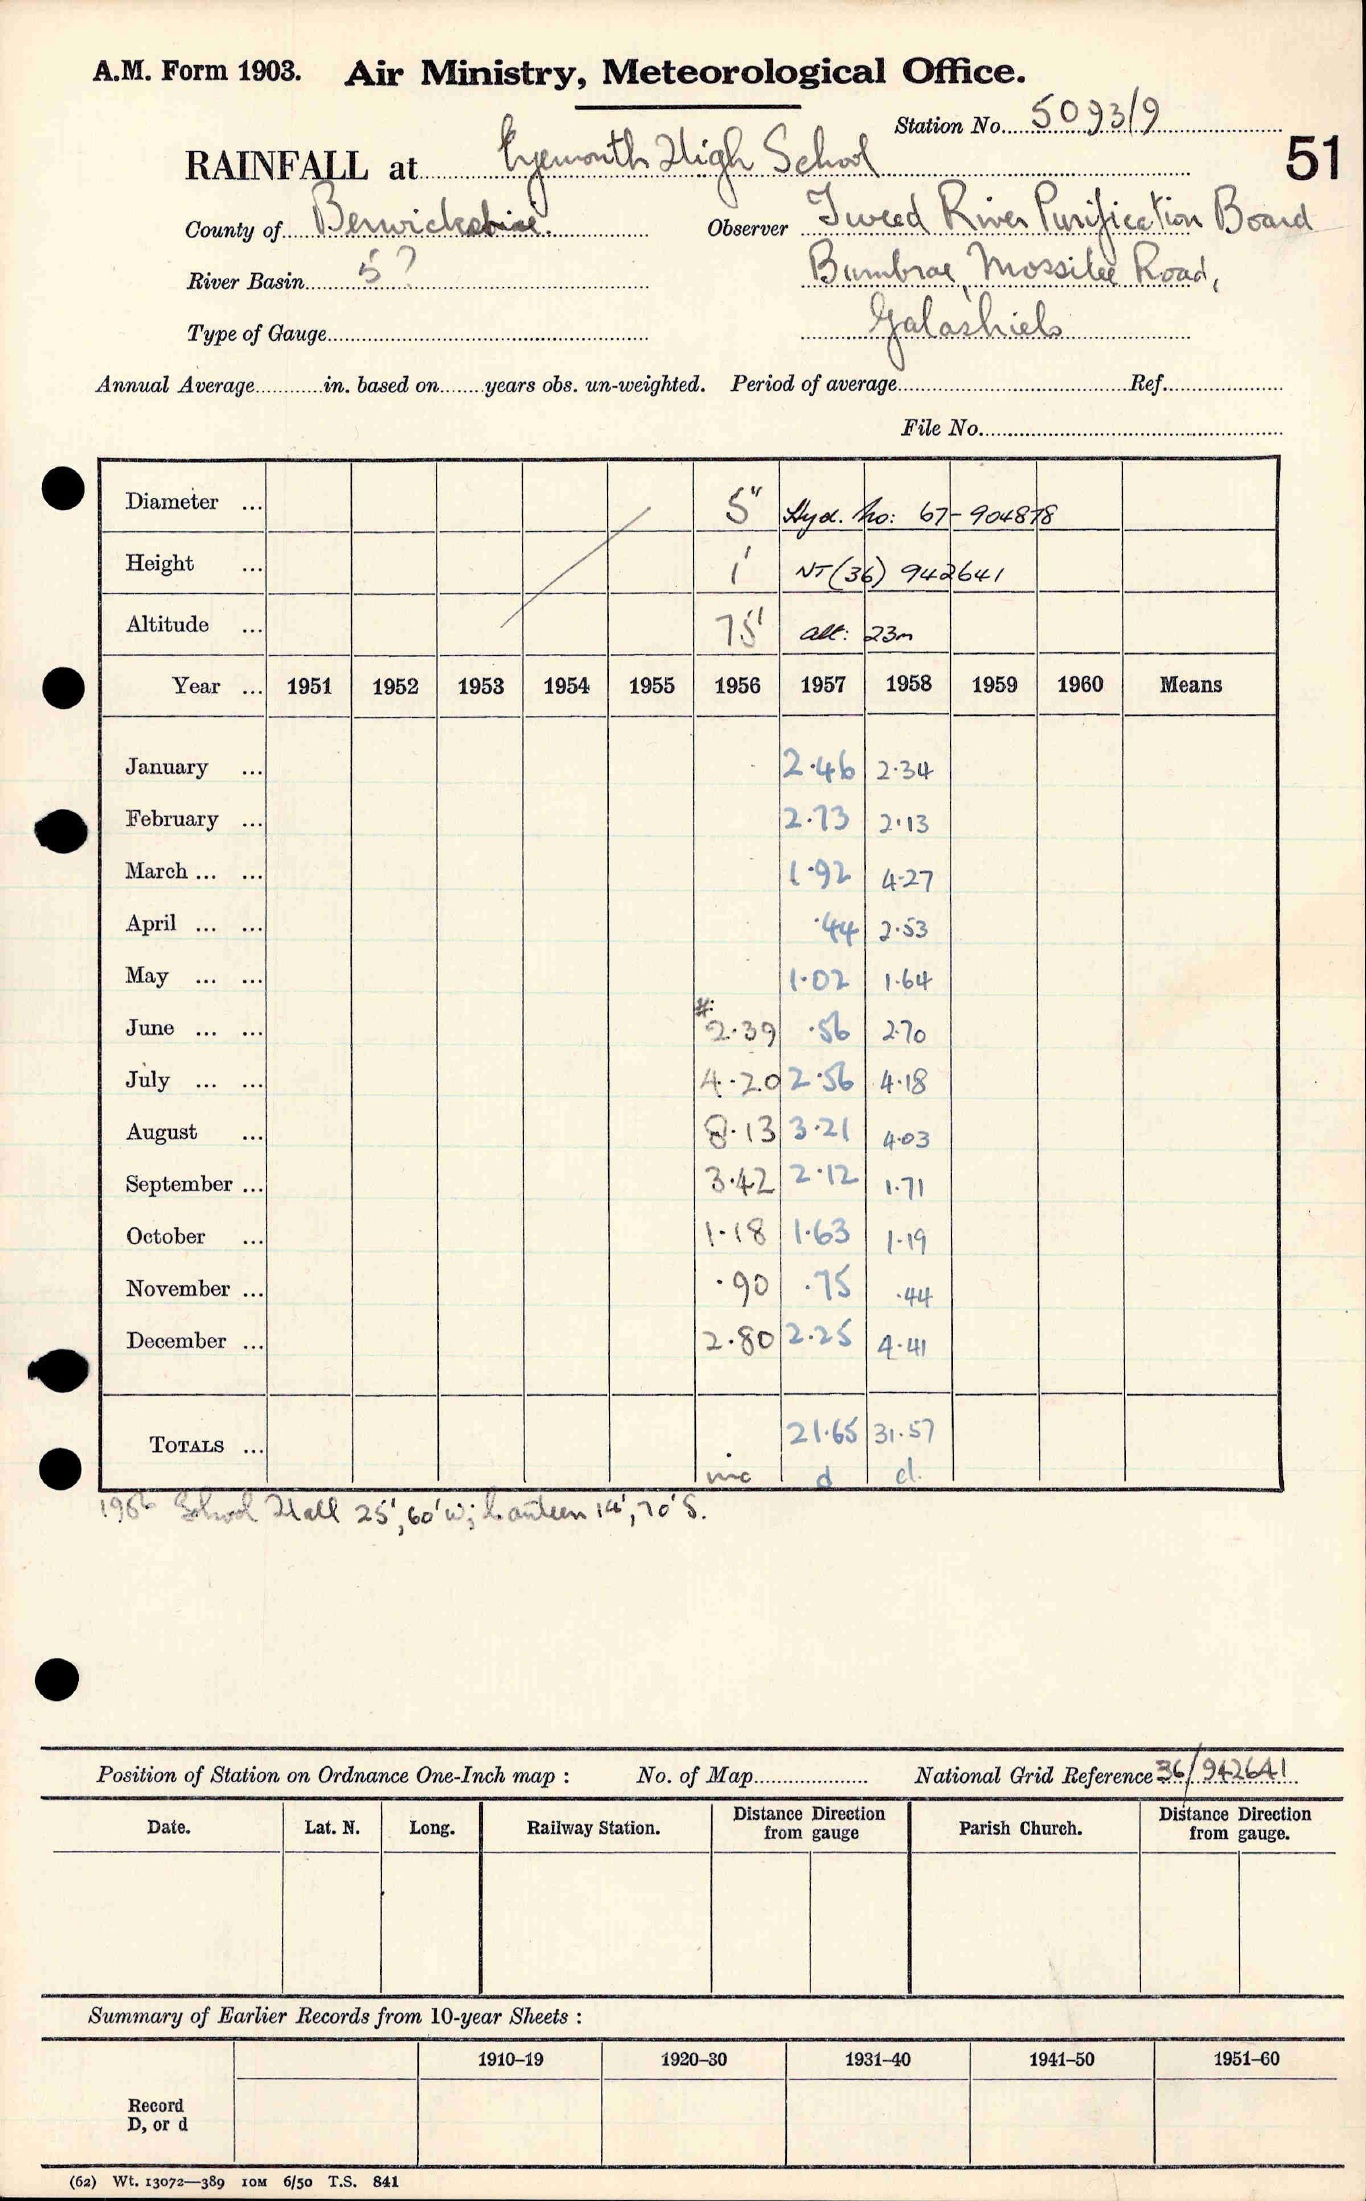 A.M. Form 1903. Air Ministry, Meteorological Office.
Station No. 5093/9
RAINFALL at Eyemouth High School
51
County of Berwickshire. Observer Tweed River Purification Board
River Basin 5? Burnbrae, Mossilee Road,
Type of Gauge Galashiels
Annual Average in. based on years obs. un-weighted. Period of average Ref.
File No.
Diameter ... 5" Hyd. No: 67-904878
Height ... 1' NT (36) 942641
Altitude ... 75' alt: 23m
Year ... 1951 1952 1953 1954 1955 1956 1957 1958 1959 1960 Means
January ... 2.46 2.34
February ... 2.73 2.13
March ... ... 1.92 4.27
April ... ... .44 2.53
May ... ... 1.02 1.64
June ... ... #2.39 .56 2.70
July ... ... 4.20 2.56 4.18
August ... 8.13 3.21 4.03
September ... 3.42 2.12 1.71
October ... 1.18 1.63 1.19
November ... .90 .75 .44
December ... 2.80 2.25 4.41
TOTALS ... 21.65 31.57
inc d d.
1956 School Hall 25', 60' W; Canteen 14', 70' S.
Position of Station on Ordnance One-Inch map : No. of Map National Grid Reference 36/942641
Date. Lat. N. Long. Railway Station. Distance Direction from gauge Parish Church. Distance Direction from gauge.
Summary of Earlier Records from 10-year Sheets :
1910–19 1920–30 1931–40 1941–50 1951–60
Record
D, or d
(62) Wt. 13072—389 10M 6/50 T.S. 841